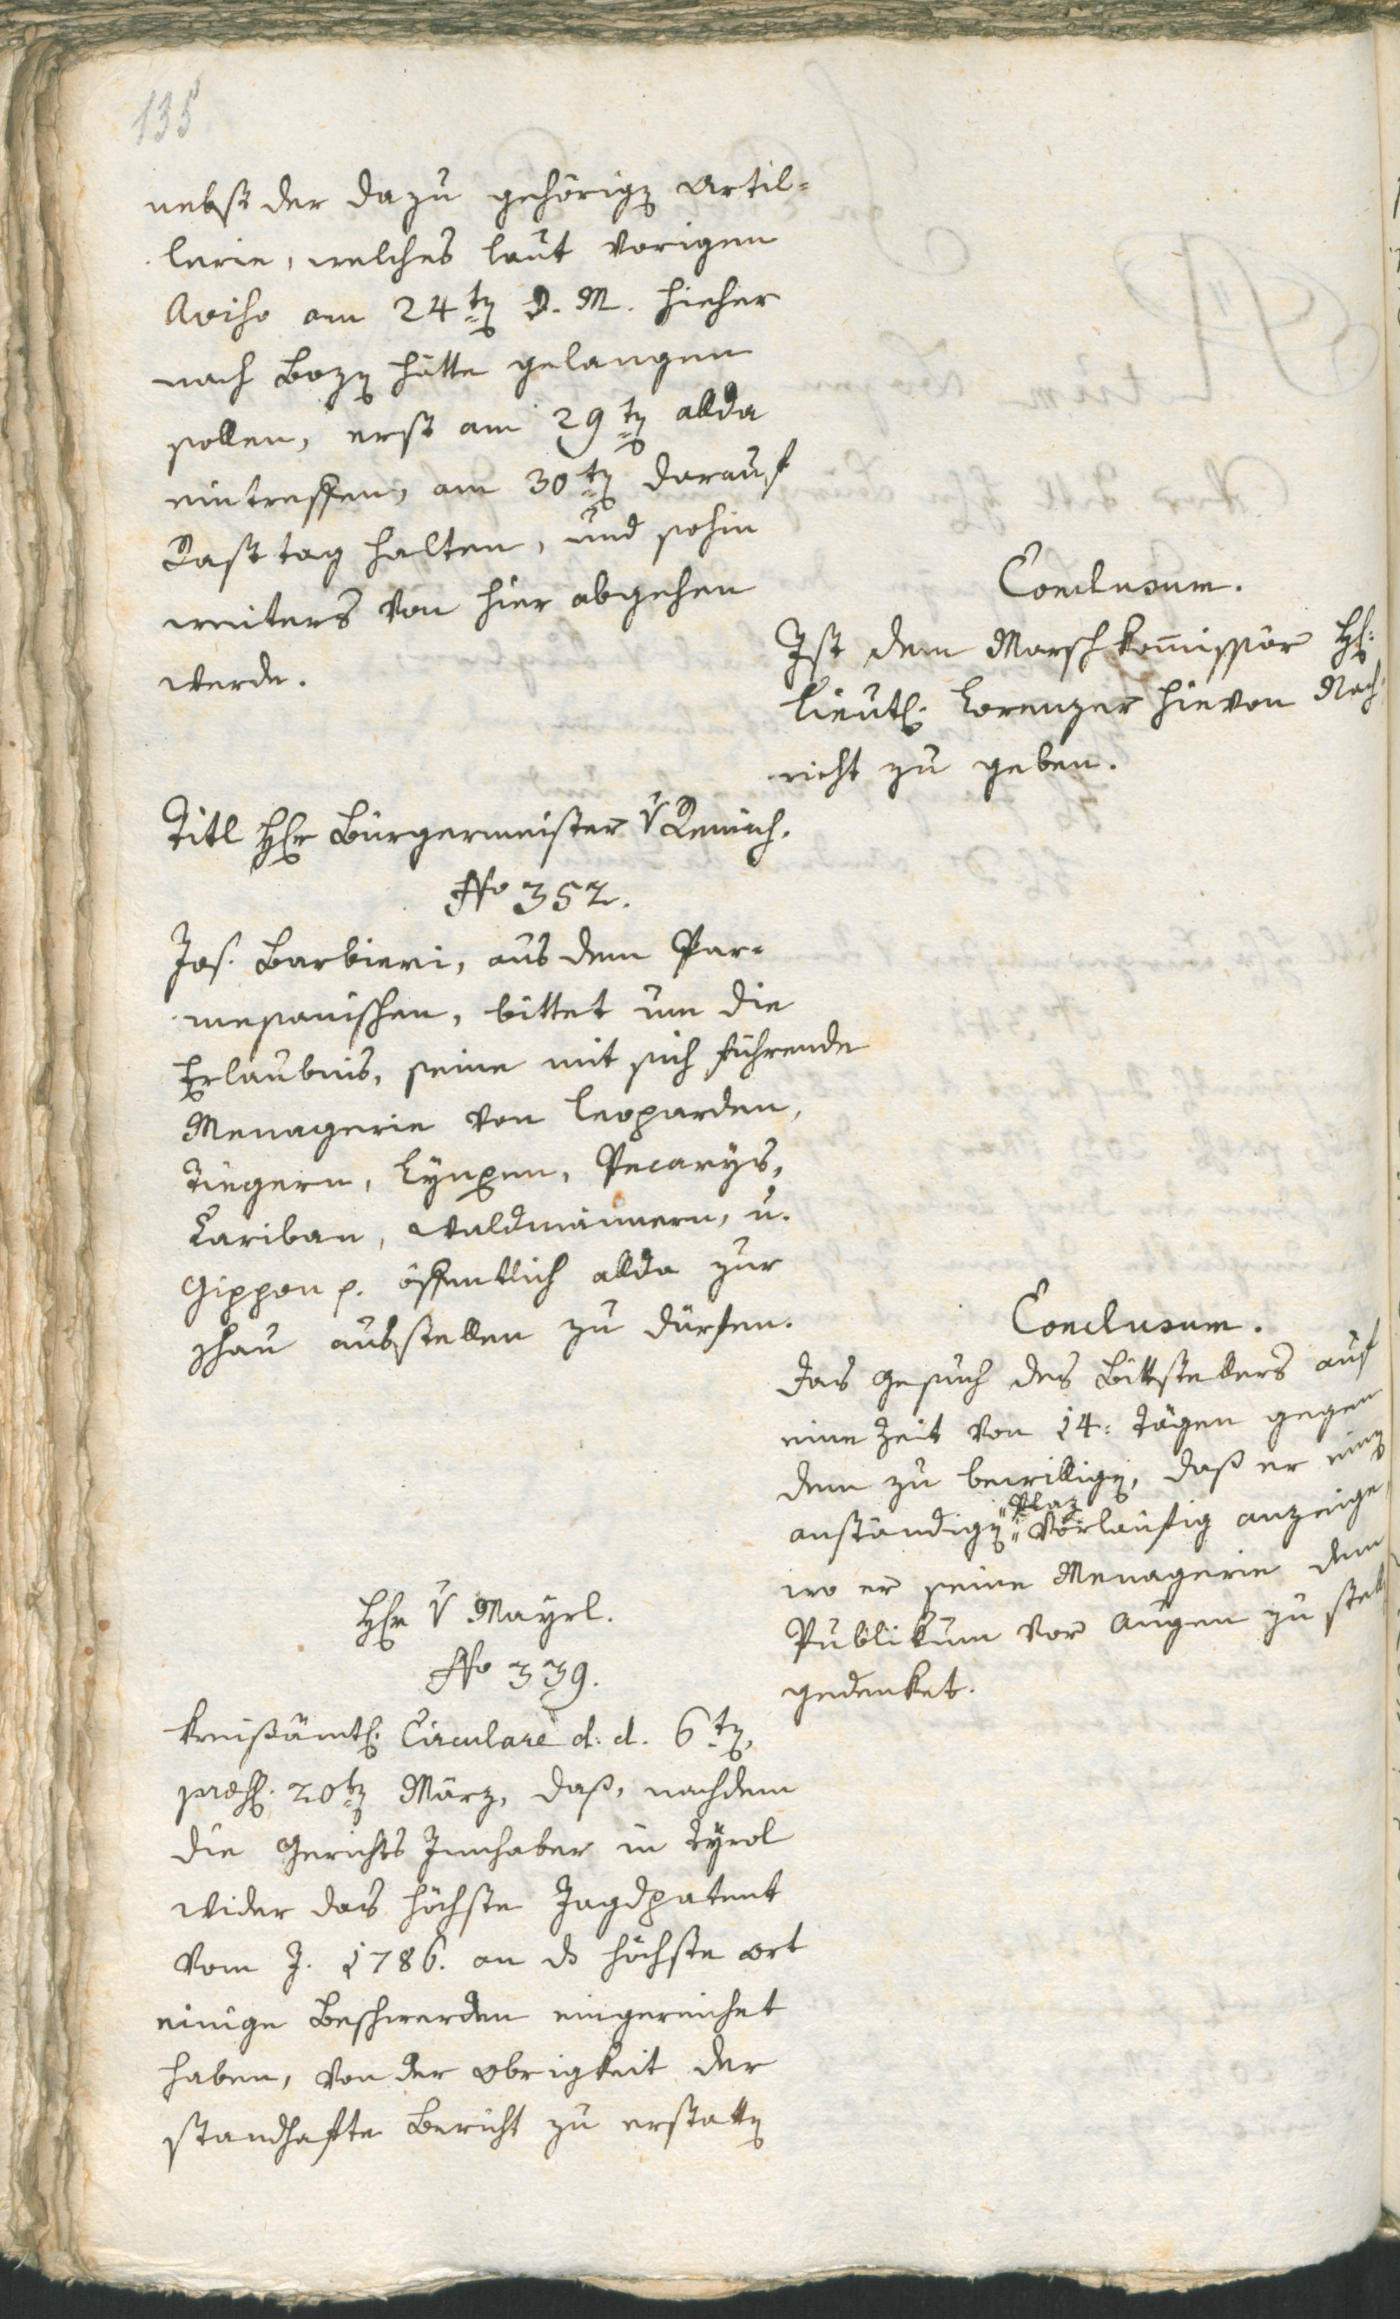 135
nebst der dazu gehörigen Artil=
lerie, welches laut vorigen
Aviso am 24ten d. M. hieher
nach Bozen hätte gelangen
sollen, erst am 29ten allda
eintreffen, am 30ten darauf
Rasttag halten, und sohin
weiters von hier abgehen
werde.
Conclusum.
Ist dem Marschkom̄issär H:
Lieut. Lorenzer hievon Nach=
richt zu geben.
Titl Herr Bürgermeister v Remich.
No 352.
Jos. Barbieri, aus dem Par=
mesanischen, bittet um die
Erlaubnis, seine mit sich führende
Menagerie von Leoparden,
Tiegern, Lynxen, Pecarys,
Cariban, Waldmännern, u.
Gippon p. öffentlich allda zur
Schau ausstellen zu dürfen.
Conclusum.
Das Gesuch des Bittstellers auf
eine Zeit von 14: Tägen gegen
dem zu bewilligen, daß er einen
anständigen "Plaz" vorläufig anzeige,
wo er seine Menagerie dem
Publikum vor Augen zu stellen
gedenket.
Herr v Mayrl.
No 339.
Kreisämtl. Circulare d. d. 6ten,
præs. 20ten März, daß, nachdem
die Gerichts Innhaber in Tyrol
wider das höchste Jagdpatent
vom J. 1786. an das höchste Ort
einige Beschwerden eingereichet
haben, von der Obrigkeit der
standhafte Bericht zu erstatten